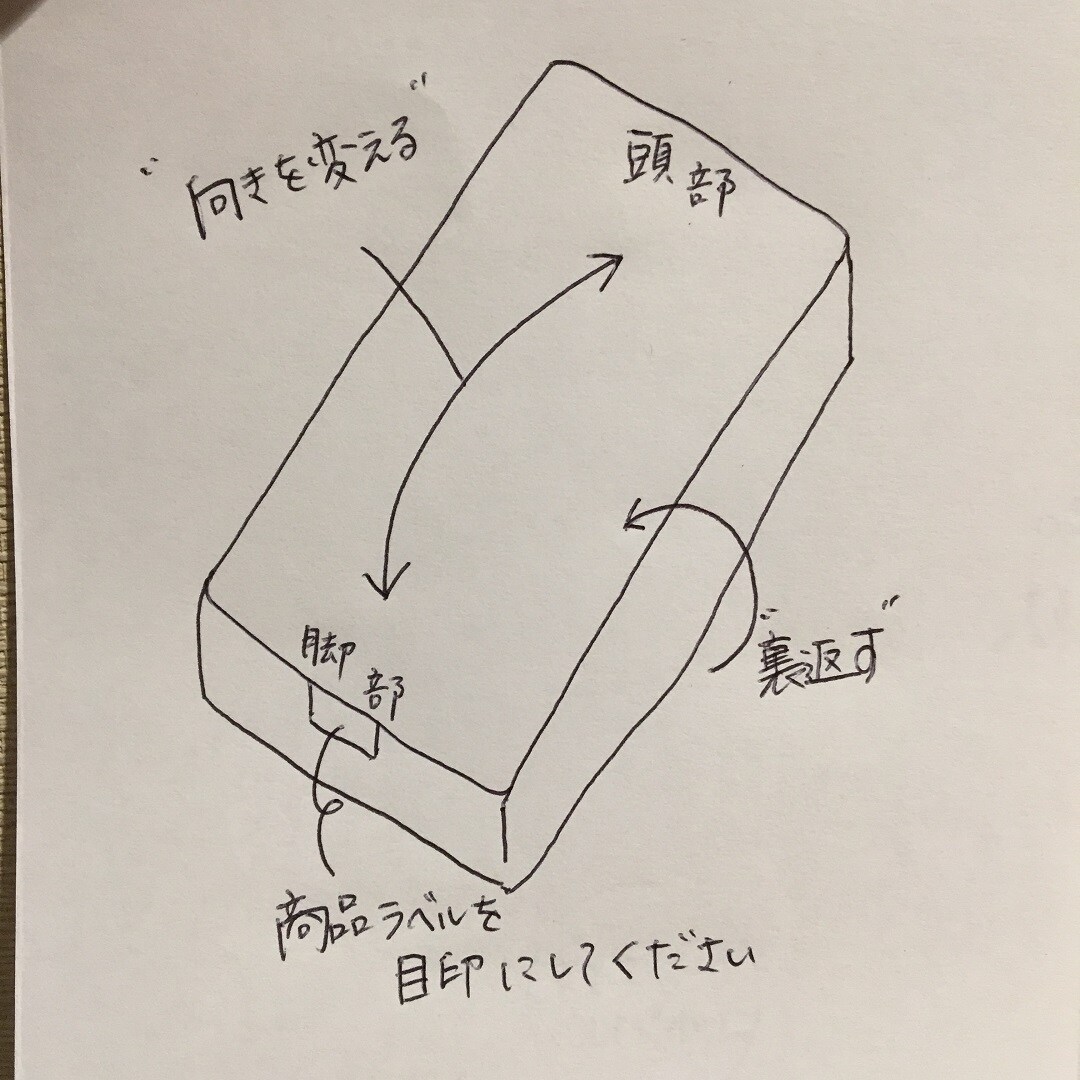 "向きを変える"
頭部
脚部
"裏返す"
商品ラベルを
目印にしてください